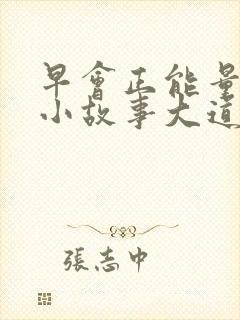 早會正能量
小故事大道
張志中